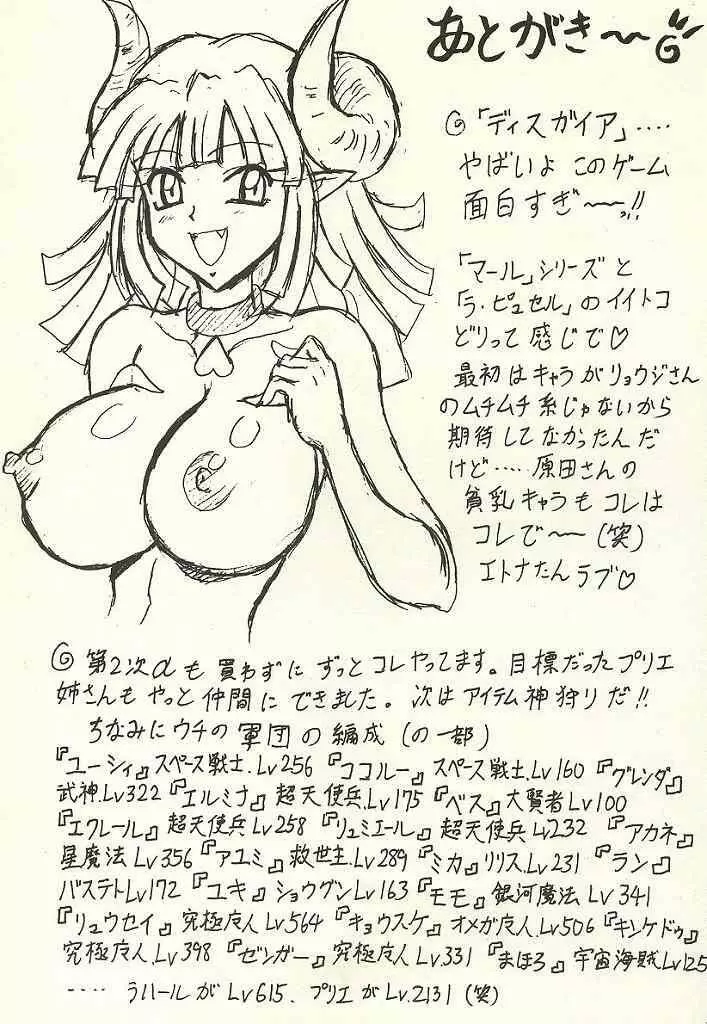 あとがき〜
◎「ディスガイア」‥‥
やばいよ このゲーム
面白すぎ〜っ!!
「マール」シリーズと
「ラ・ピュセル」のイイトコ
どりって感じで♡
最初はキャラがリョウジさん
のムチムチ系じゃないから
期待してなかったんだ
けど‥‥原田さんの
貧乳キャラもコレは
コレで〜(笑)
エトナたんラブ♡
◎第2次αも買わずにずっとコレやってます。目標だったプリエ
姉さんもやっと仲間にできました。次はアイテム神狩りだ!!
ちなみにウチの軍団の編成(の一部)
『ユーシィ』スペース戦士.Lv256『ココルー』スペース戦士.Lv160『グレンダ』
武神.Lv322『エルミナ』超天使兵.Lv175『ベス』大賢者Lv100
『エクレール』超天使兵Lv258『リュミエール』超天使兵Lv232『アカネ』
星魔法Lv356『アユミ』救世主.Lv289『ミカ』リリス.Lv231『ラン』
バステトLv172『ユキ』ショウグンLv163『モモ』銀河魔法Lv341
『リュウセイ』究極广人.Lv564『キョウスケ』オメガ广人.Lv506『キンケドゥ』
究極广人.Lv398『ゼンガー』究極广人.Lv331『まほろ』宇宙海賊Lv125
‥‥ラハールがLv615、プリエがLv.2131(笑)